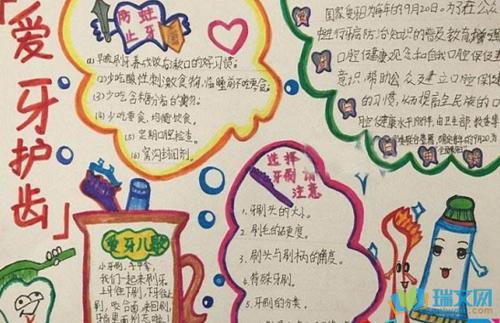 「爱牙护齿」
防蛀
止牙
(1)早晚刷牙养成饭后漱口的好习惯;
(2)少吃酸性刺激食物,临睡前不吃零食;
(3)少吃含糖分高的食物。
(4)少吃零食,均衡饮食。
(5)定期口腔检查。
(6)窝沟封闭剂。
国家爱牙日为每年的9月20日。为了在公众
口腔健康观念和自我口腔保健
意识,帮助公众建立口腔保健
的习惯,从而提高全民族的口
腔健康水平
选择
牙刷请
注意
1、牙刷头的大小。
2、刷毛的硬度。
3、牙刷头与刷柄的角度。
4、特殊牙刷。
5、牙刷的分类。
爱牙儿歌
小牙刷,手中拿,
我们一起来刷牙。
上牙往下刷,下牙往上
刷,咬合面来回刷,
瑞文网
ruiwen.com